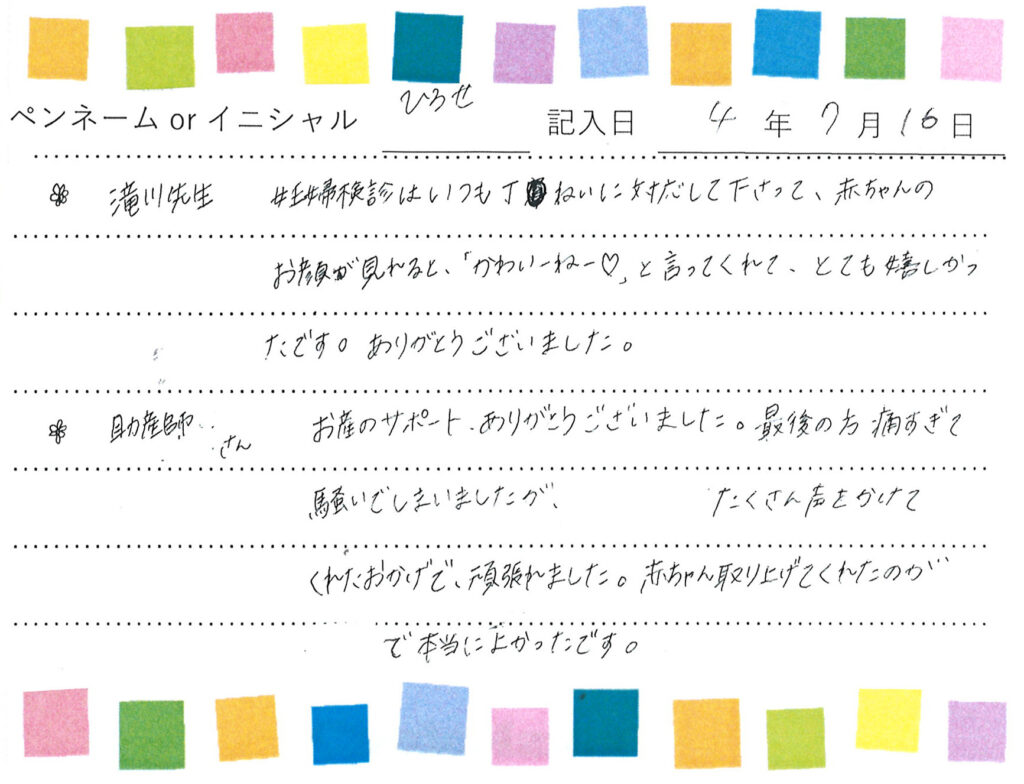 ペンネーム or イニシャル ひろせ 記入日 4年 7月 16日
滝川先生 妊婦検診はいつも丁ねいに対応して下さって、赤ちゃんの
お顔が見れると、「かわいーねー♡」と言ってくれて、とても嬉しかっ
たです。ありがとうございました。
助産師 さん お産のサポート、ありがとうございました。最後の方痛すぎて
騒いでしまいましたが、 たくさん声をかけて
くれたおかげで、頑張れました。赤ちゃん取り上げてくれたのが
で本当によかったです。